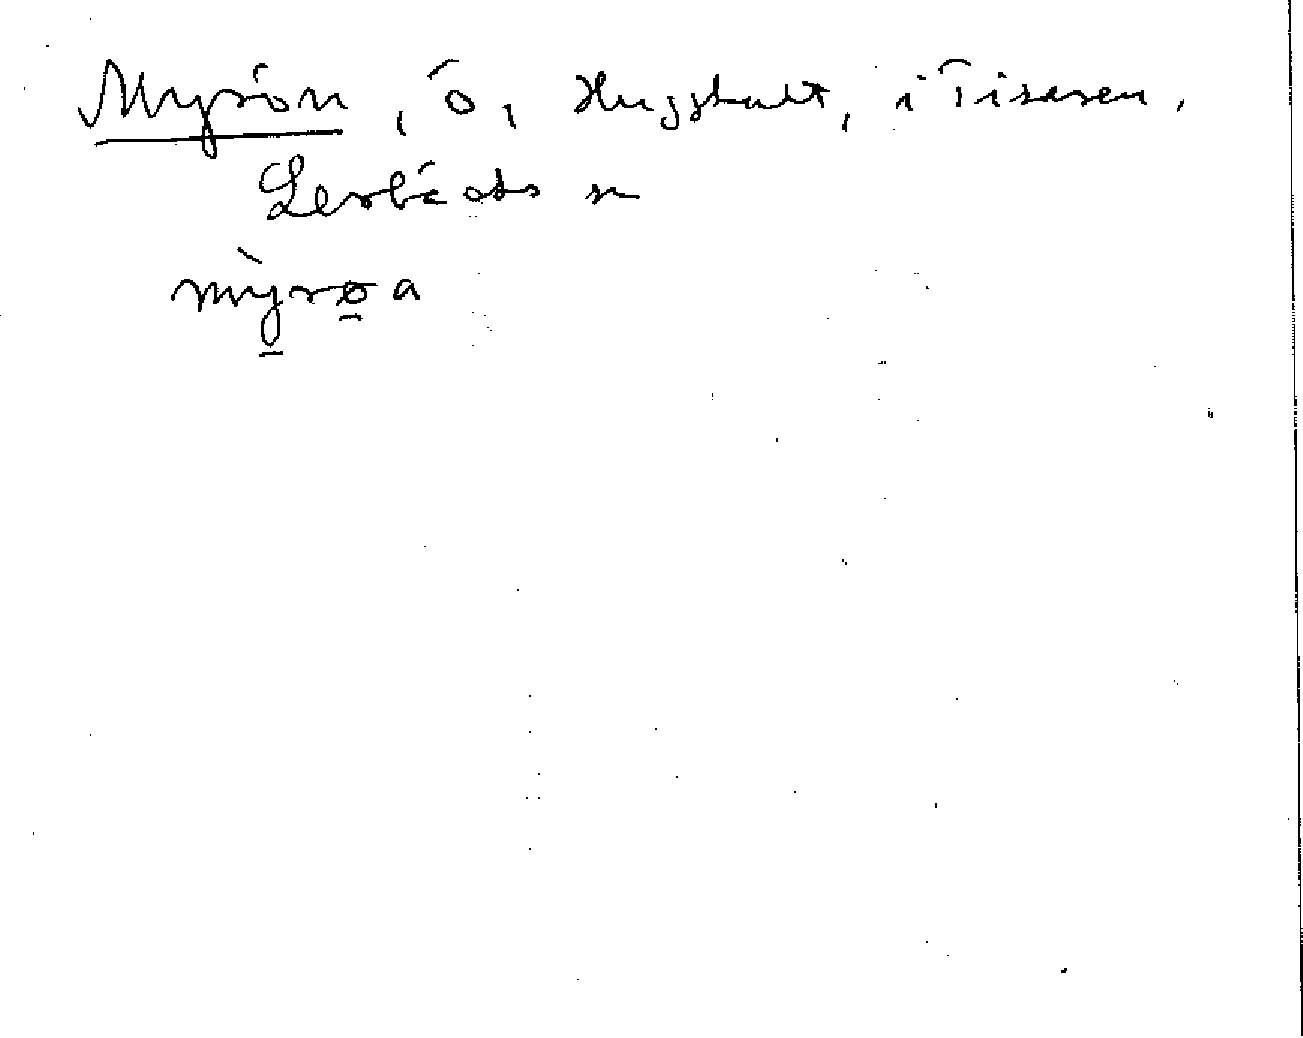 Myrön, ö, Huggstait, i Tisaren,
Lerbäcks sn
mỳrøa